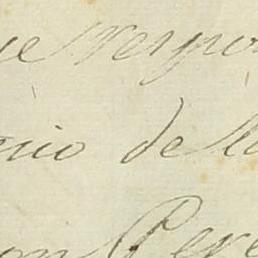 ue respon
nio de la
on Pere